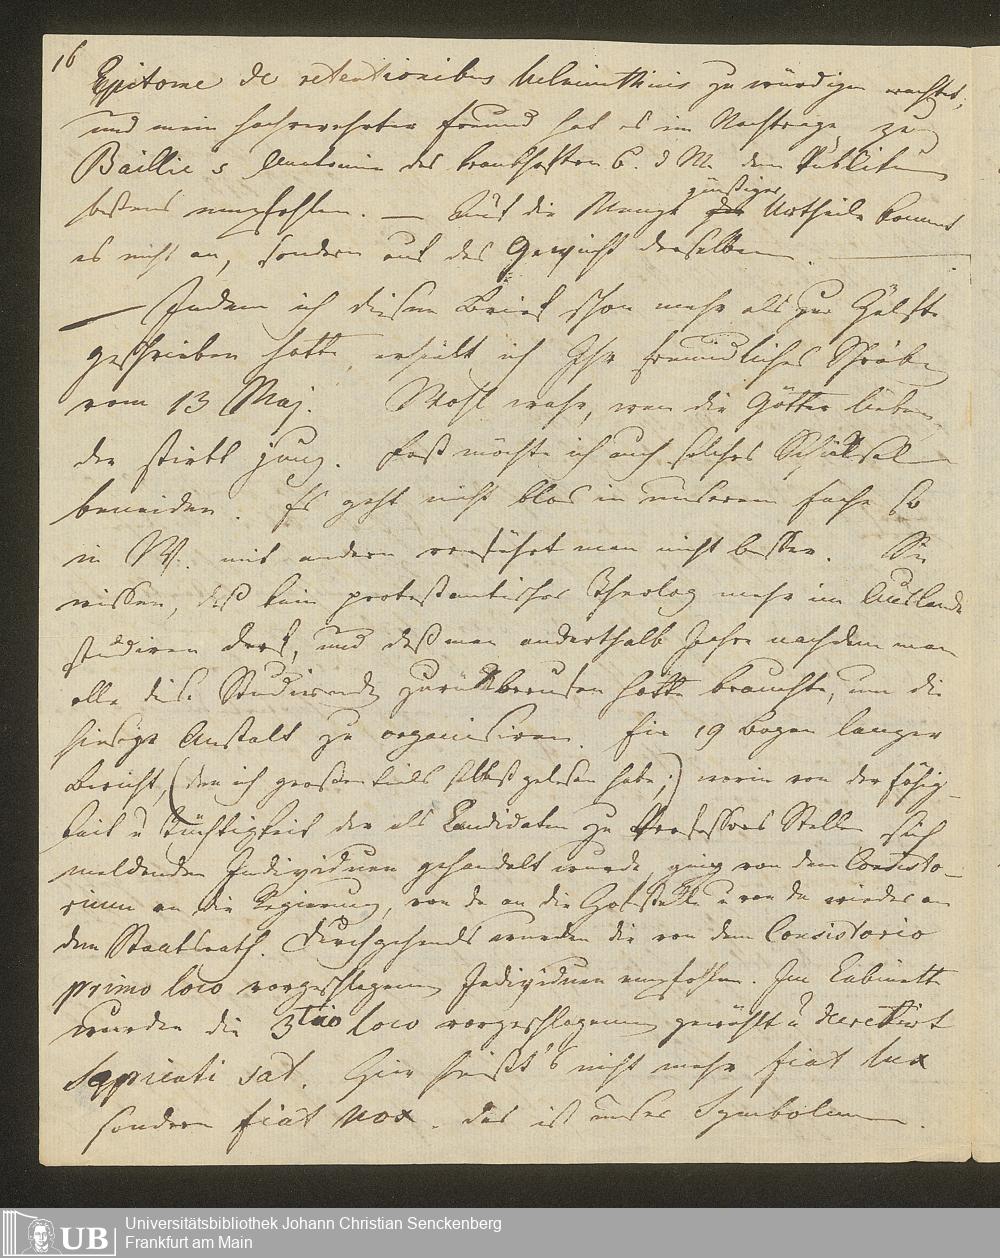 16
Epitome de retentionibus helminthinis zu würdigen wachtet,
und mein hochverehrter Freund hat es im Nachtrage zu
Baillie's Anatomie des krankhaften B. d M. dem Publikum
bestens empfohlen. — Auf die Menge günstiger Urtheile kommt
es nicht an, sondern auf das Gewicht derselben.
— Indem ich diesen Brief schon mehr als zur Hälfte
geschrieben hatte, erhielt ich Ihr freundliches Schreiben
vom 13 Maj. Wohl wahr, wen die Götter lieben,
der stirbt jung. Fast möchte ich auch solches Schicksal
beneiden. Es geht nicht blos in unserem Fache so
in W. mit andern verfährt man nicht besser. Sie
wissen, daß kein protestantischer Theolog mehr im Auslande
studiren darf, und daß man anderthalb Jahre nachdem man
alle die Studirende zurückberufen hatte brauchte, um die
hiesige Anstalt zu organisiren. Ein 19 Bogen langer
Bericht, (den ich großen theils selbst gelesen habe,) worin von der Fähig-
keit u Tüchtigkeit der als Candidaten zu Professors Stellen sich
meldenden Individuen gehandelt wurde, ging von dem Consisto-
rium an die Regierung, von da an die Hofstelle u von da wieder an
den Staatsrath. Durchgehends wurden die von dem Consistorio
primo loco vorgeschlagenen Individuen empfohlen. Im Cabinette
wurden die 3tio loco vorgeschlagenen gewählt u decretirt
Sapienti sat. Hier heißt's nicht mehr fiat lux
sondern fiat nox. das ist unser Symbolum.
Universitätsbibliothek Johann Christian Senckenberg
Frankfurt am Main
UB